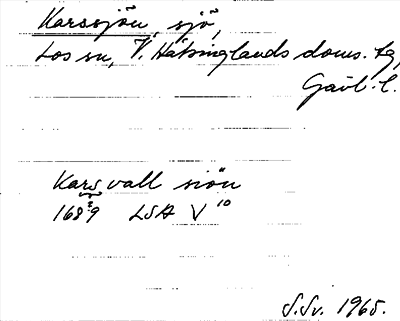 Karssjön, sjö,
Los sn, V. Hälsinglands doms. tg,
Gävl. l.
Kars vall siön
1689 LSA V 10
S.Sv. 1965.